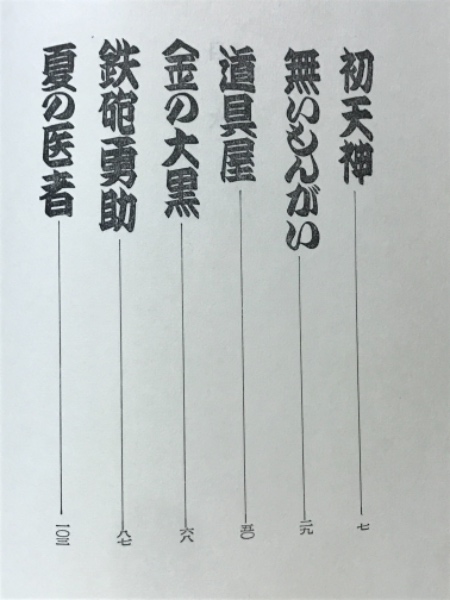 初天神 七
無いもんがい 二九
道具屋 五〇
金の大黒 六八
鉄砲勇助 八七
夏の医者 一〇三